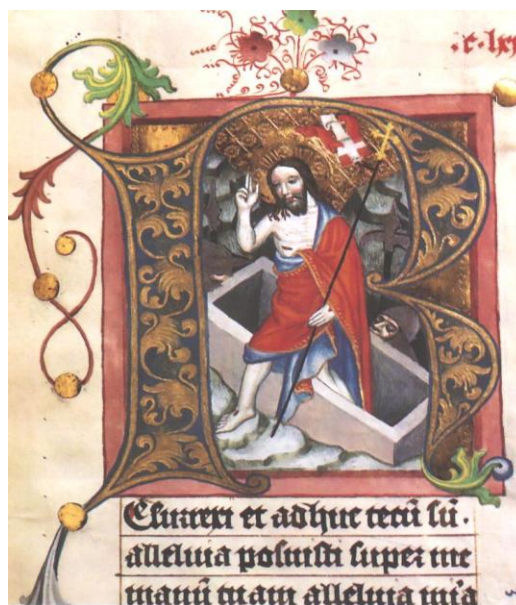 REsurrexi et adhuc tecū sū.
alleluia posuisti super me
manū tuam alleluia